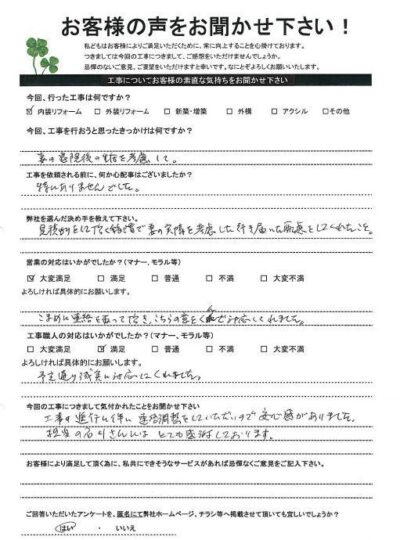 お客様の声をお聞かせ下さい！
私どもはお客様によりご満足いただくために、常に向上することを心掛けております。
つきましては今回の工事につきまして、ご感想をいただけませんでしょうか。
忌憚のないご意見、ご要望をいただけますと幸いです。なにとぞよろしくお願いいたします。
工事についてお客様の素直な気持ちをお聞かせ下さい
今回、行った工事は何ですか？
☑ 内装リフォーム □ 外装リフォーム □ 新築・増築 □ 外構 □ アクシル □その他
今回、工事を行おうと思ったきっかけは何ですか？
妻の退院後の生活を考慮して。
工事を依頼される前に、何か心配事はございましたか？
特にありませんでした。
弊社を選んだ決め手を教えて下さい。
見積りをして頂く時点で妻の実情を考慮した行き届いた配慮をしてくれたこと。
営業の対応はいかがでしたか？(マナー、モラル等)
☑ 大変満足 □ 満足 □ 普通 □ 不満 □ 大変不満
よろしければ具体的にお願いします。
こまめに連絡を取って頂き、こちらの意をくんで対応してくれました。
工事職人の対応はいかがでしたか？(マナー、モラル等)
□ 大変満足 ☑ 満足 □ 普通 □ 不満 □ 大変不満
よろしければ具体的にお願いします。
予定通り誠実に対応してくれました。
今回の工事につきまして気付かれたことをお聞かせ下さい
工事の進行に伴い連絡調整をしていただいので安心感がありました。
担当の石川さんには とても感謝しております。
お客様により満足して頂く為に、私共にできそうなサービスがあれば忌憚なくご意見をご記入下さい。
ご回答いただいたアンケートを、匿名にて弊社ホームページ、チラシ等へ掲載させて頂いても宜しいでしょうか？
はい ・ いいえ